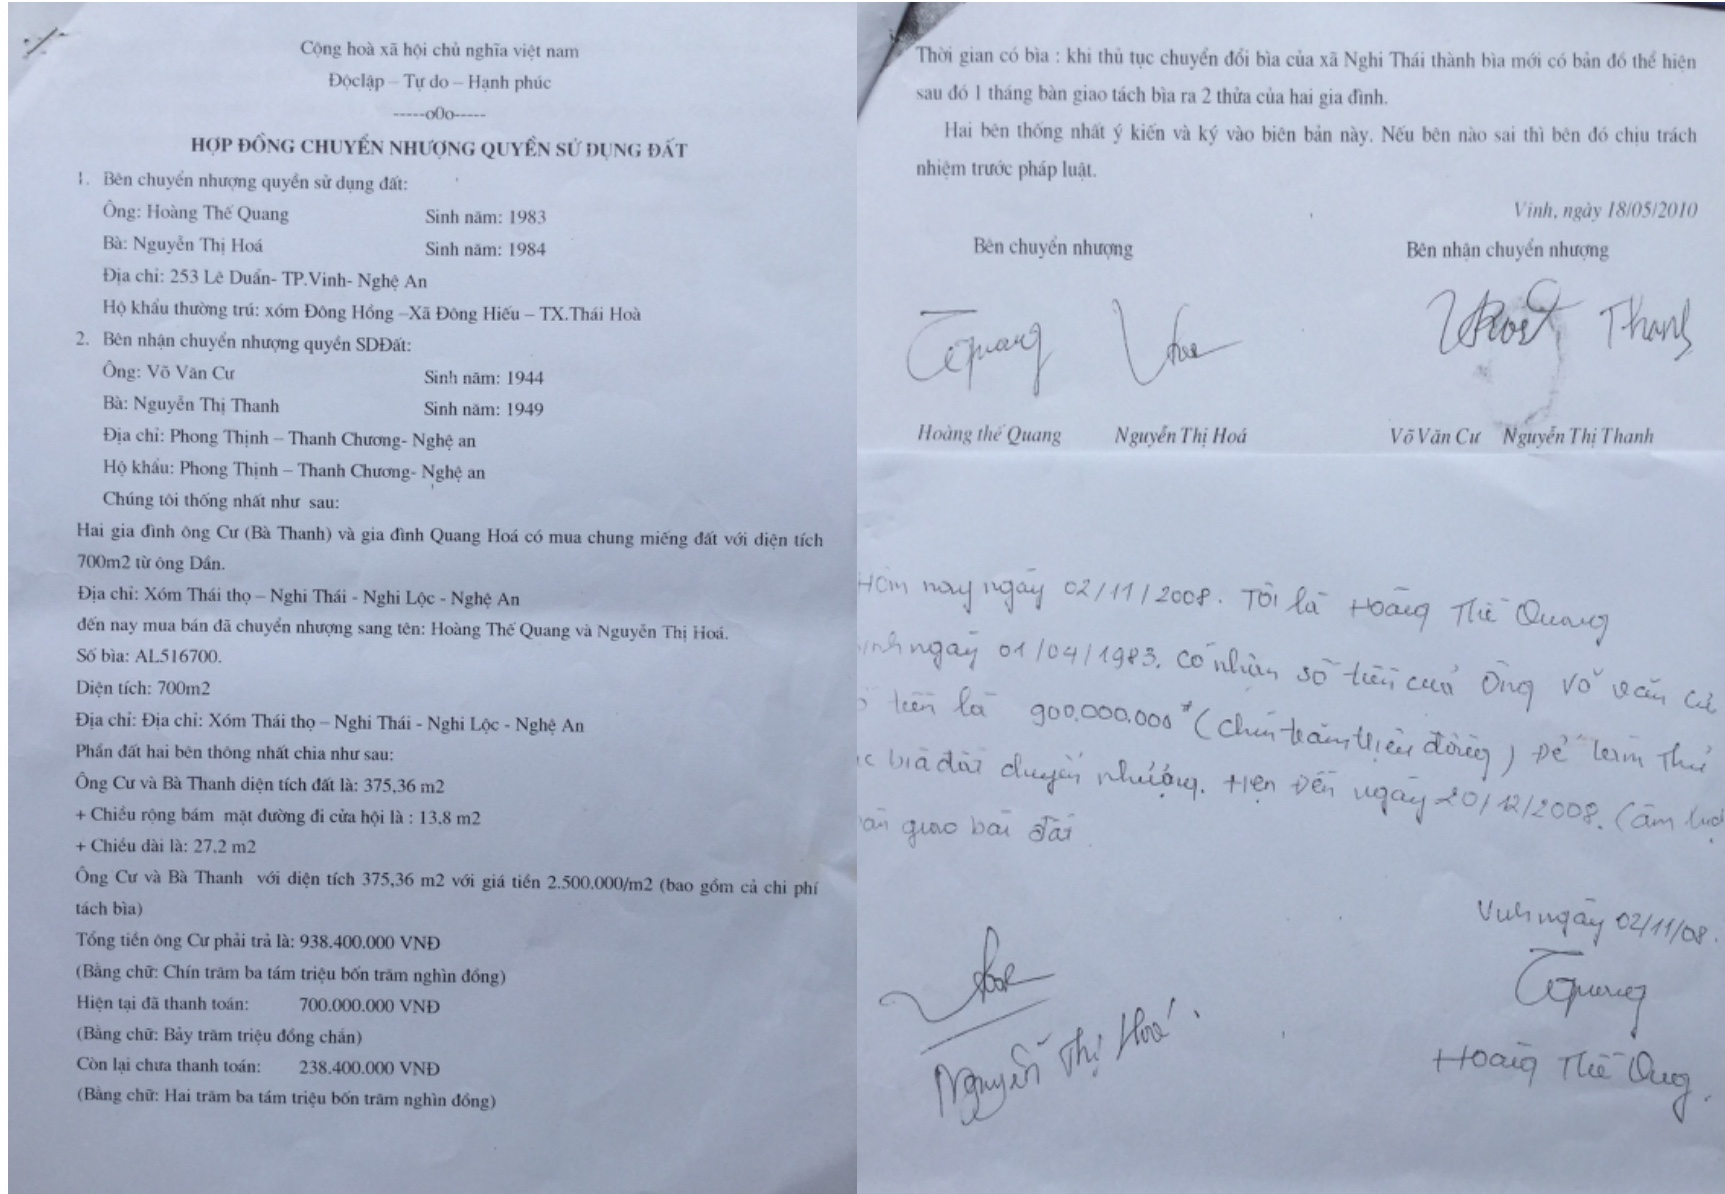 Cộng hoà xã hội chủ nghĩa việt nam
Độclập – Tự do – Hạnh phúc
-----o0o-----
HỢP ĐỒNG CHUYỂN NHƯỢNG QUYỀN SỬ DỤNG ĐẤT
1. Bên chuyển nhượng quyền sử dụng đất:
Ông: Hoàng Thế Quang Sinh năm: 1983
Bà: Nguyễn Thị Hoá Sinh năm: 1984
Địa chỉ: 253 Lê Duẩn- TP.Vinh- Nghệ An
Hộ khẩu thường trú: xóm Đông Hồng –Xã Đông Hiếu – TX.Thái Hoà
2. Bên nhận chuyển nhượng quyền SDĐất:
Ông: Võ Văn Cư Sinh năm: 1944
Bà: Nguyễn Thị Thanh Sinh năm: 1949
Địa chỉ: Phong Thịnh – Thanh Chương- Nghệ an
Hộ khẩu: Phong Thịnh – Thanh Chương- Nghệ an
Chúng tôi thống nhất như sau:
Hai gia đình ông Cư (Bà Thanh) và gia đình Quang Hoá có mua chung miếng đất với diện tích
700m2 từ ông Dần.
Địa chỉ: Xóm Thái thọ – Nghi Thái - Nghi Lộc - Nghệ An
đến nay mua bán đã chuyển nhượng sang tên: Hoàng Thế Quang và Nguyễn Thị Hoá.
Số bìa: AL516700.
Diện tích: 700m2
Địa chỉ: Địa chỉ: Xóm Thái thọ – Nghi Thái - Nghi Lộc - Nghệ An
Phần đất hai bên thông nhất chia như sau:
Ông Cư và Bà Thanh diện tích đất là: 375,36 m2
+ Chiều rộng bám mặt đường đi cửa hội là : 13,8 m2
+ Chiều dài là: 27,2 m2
Ông Cư và Bà Thanh với diện tích 375,36 m2 với giá tiền 2.500.000/m2 (bao gồm cả chi phí
tách bìa)
Tổng tiền ông Cư phải trả là: 938.400.000 VNĐ
(Bằng chữ: Chín trăm ba tám triệu bốn trăm nghìn đồng)
Hiện tại đã thanh toán: 700.000.000 VNĐ
(Bằng chữ: Bảy trăm triệu đồng chẵn)
Còn lại chưa thanh toán: 238.400.000 VNĐ
(Bằng chữ: Hai trăm ba tám triệu bốn trăm nghìn đồng)
Thời gian có bìa : khi thủ tục chuyển đổi bìa của xã Nghi Thái thành bìa mới có bản đồ thể hiện
sau đó 1 tháng bàn giao tách bìa ra 2 thửa của hai gia đình.
Hai bên thống nhất ý kiến và ký vào biên bản này. Nếu bên nào sai thì bên đó chịu trách
nhiệm trước pháp luật.
Vinh, ngày 18/05/2010
Bên chuyển nhượng Bên nhận chuyển nhượng
Thanh
Hoàng thế Quang Nguyễn Thị Hoá Võ Văn Cư Nguyễn Thị Thanh
Hôm nay ngày 02/11/2008. Tôi là Hoàng Thế Quang
ngày 01/04/1983. Có nhận số tiền của Ông Võ Văn Cư
tiền là 900.000.000đ (chín trăm triệu đồng) Để làm thủ
bìa đất chuyển nhượng. Hẹn Đến ngày 20/12/2008. (âm
giao bài đất
Vinh ngày 02/11/08.
Quang
Nguyễn Thị Hoá.
Hoàng Thế Quang.